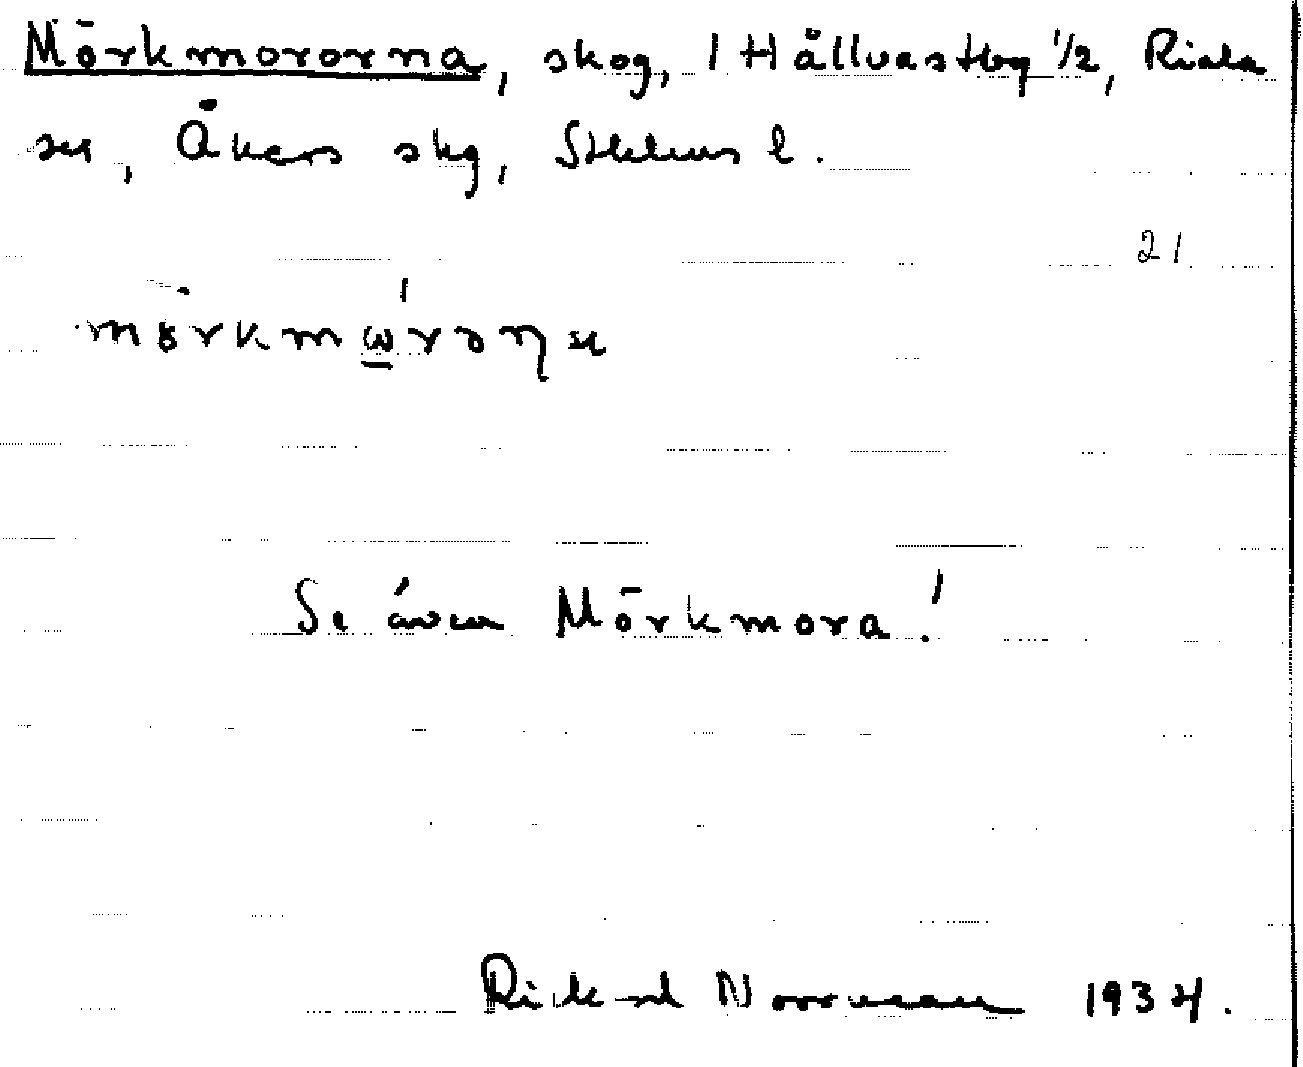 Mörkmororna, skog, 1 Hållvastbg 1/2, Riala
sn, Åkers skg, Sthlms l.
21
Se även Mörkmora!
Rickard Norrman 1934.